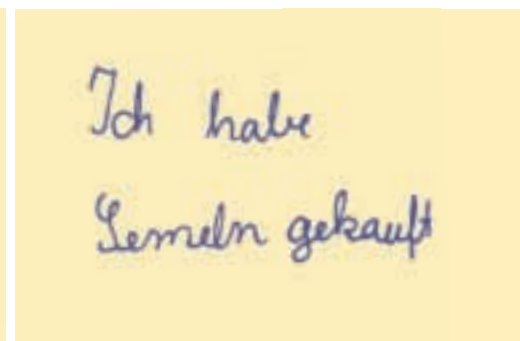 Ich habe
Semeln gekauft